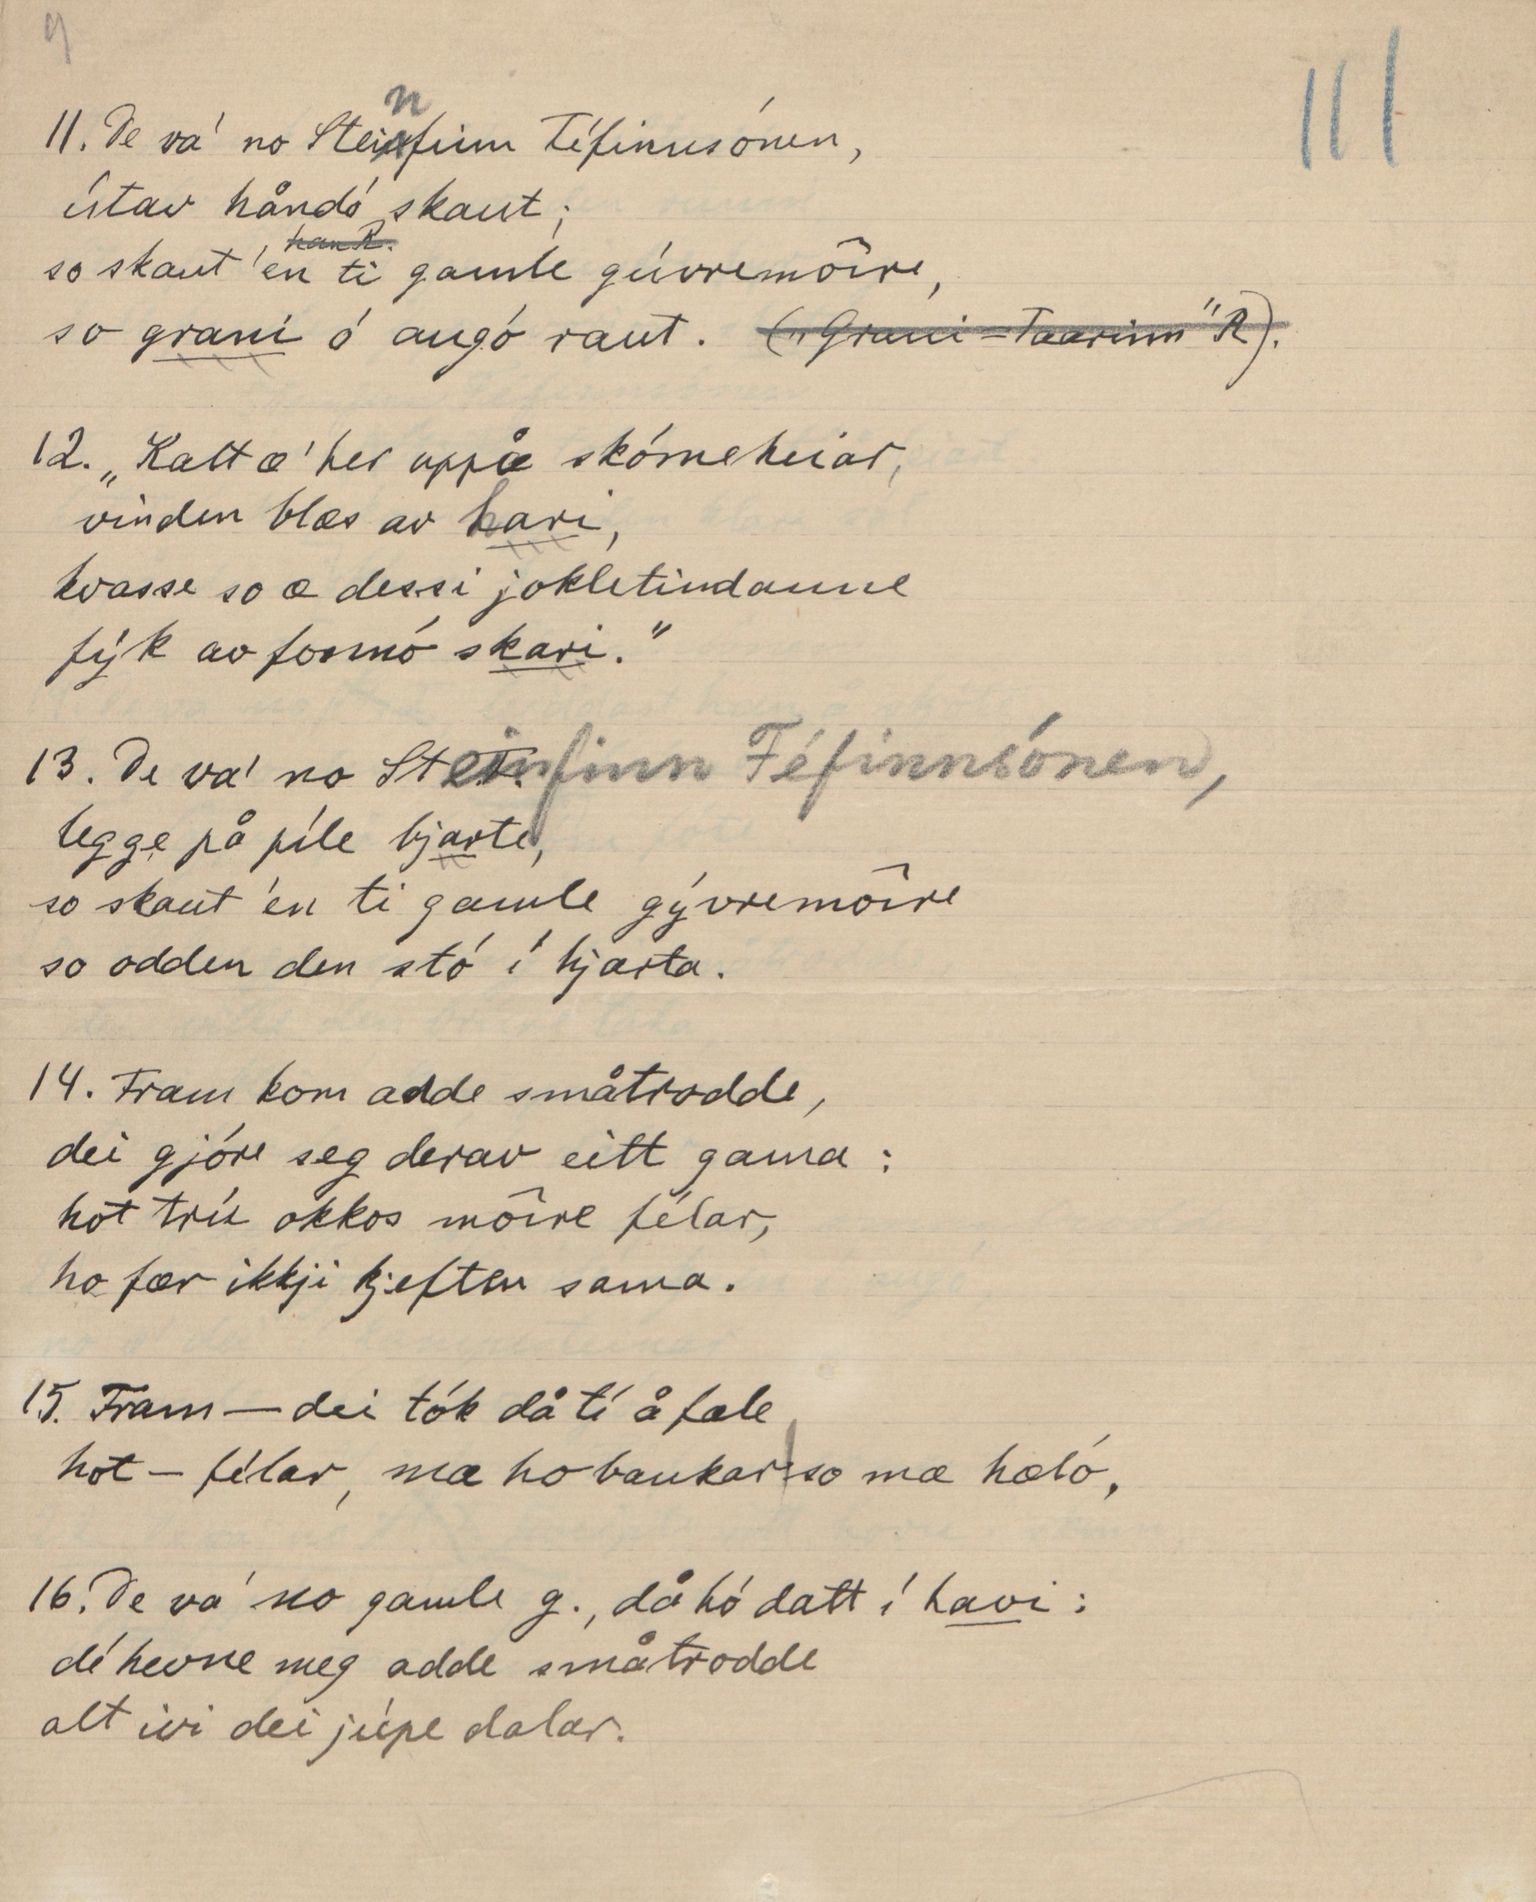 9
111
11. De va' no Steinfinn Féfinnsónen,
útav håndó skaut;
so skaut 'en han R. ti gamle gúvremôire,
so grani ó augó raut. („Grani = Taarinn" R).
12. „Kalt æ' her uppå skómeheiar,
vinden blæs av hari,
kvasse so æ dessi jokletindanne
fýk av fonnó skari."
13. De va' no Steinfinn Féfinnsónen,
legge på píle bjarte,
so skaut 'en ti gamle gývremôire
so odden den stó í hjarta.
14. Fram kom adde småtrodde,
dei gjóre seg derav eitt gama:
hot trú okkos môire félar,
ho fær ikkji kjeften sama.
15. Fram — dei tók då tí å fæle
hot — félar, mæ ho baukar so mæ hæló,
16. De va' no gamle g., då hó datt í havi:
dé hevne meg adde småtrodde
alt ivi dei júpe dalar.